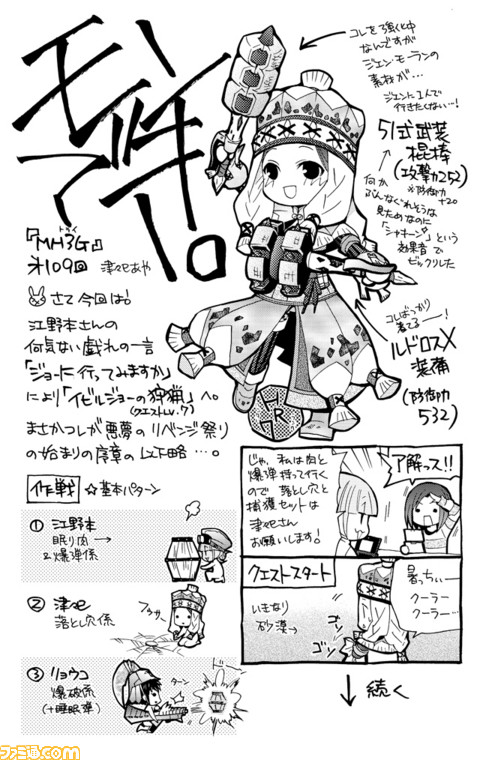 モンハン
って、
『MH3G』
トライ
才109回 津々巴あや
さて今回は!
江野本さんの
何気ない戯れの一言
「ジョーに行ってみますか」
により「イビルジョーの狩猟」へ。
(クエストLv.7)
まさかコレが悪夢のリベンジ祭り
の始まりの序章の以下略…。
コレを強化中
なんですが
ジエン・モーランの
素材が…
ジエンに1人で
行きたくない…!
51式武装
棍棒
(攻撃力252)
※防御力
+20
何か
見ためなのに
「シャキーン」という
効果音で
ビックリした
コレばっかり
着てるー!
ルドロスX
装備
(防御力
532)
R
作戦
☆基本パターン
① 江野本
眠り肉→
&爆弾係
② 津々巴
落とし穴係
③ リョウコ
爆破係
(+睡眠弾)
ターン
ドォーン
じゃ、私は肉と
爆弾持って行く
ので 落とし穴と
捕獲セットは
津々巴さん
お願いします。
了解っス!!
クエストスタート
いきなり
砂漠→
暑っちぃー
クーラー
クーラー…
ゴソ
ゴソ
↓ 続く
ファミ通.com